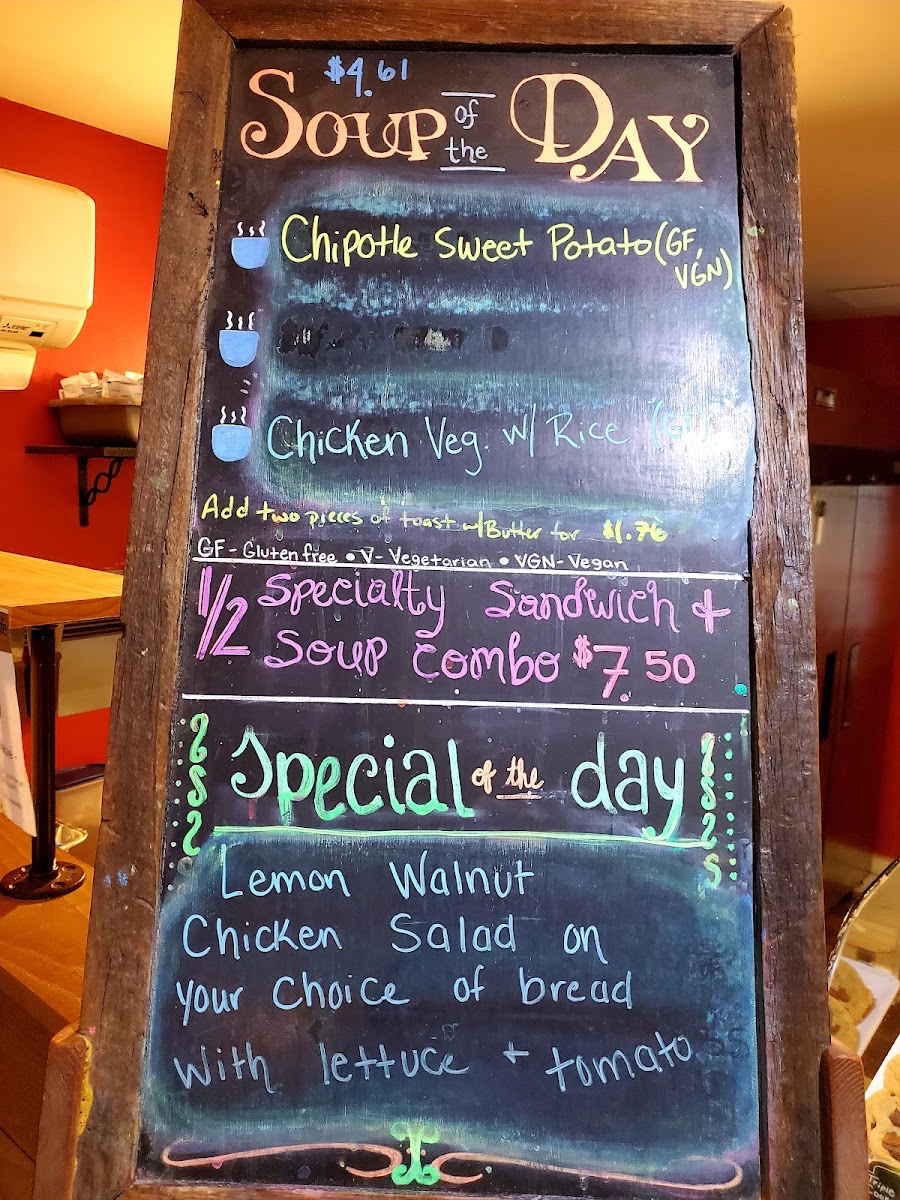 $4.61
SOUP of the DAY
Chipotle Sweet Potato (GF,
VGN)
Chicken Veg. w/ Rice (GF)
Add two pieces of toast w/Butter for $1.76
GF - Gluten free • V - Vegetarian • VGN - Vegan
1/2 Specialty Sandwich +
Soup Combo $7.50
Special of the day
Lemon Walnut
Chicken Salad on
your choice of bread
with lettuce + tomato